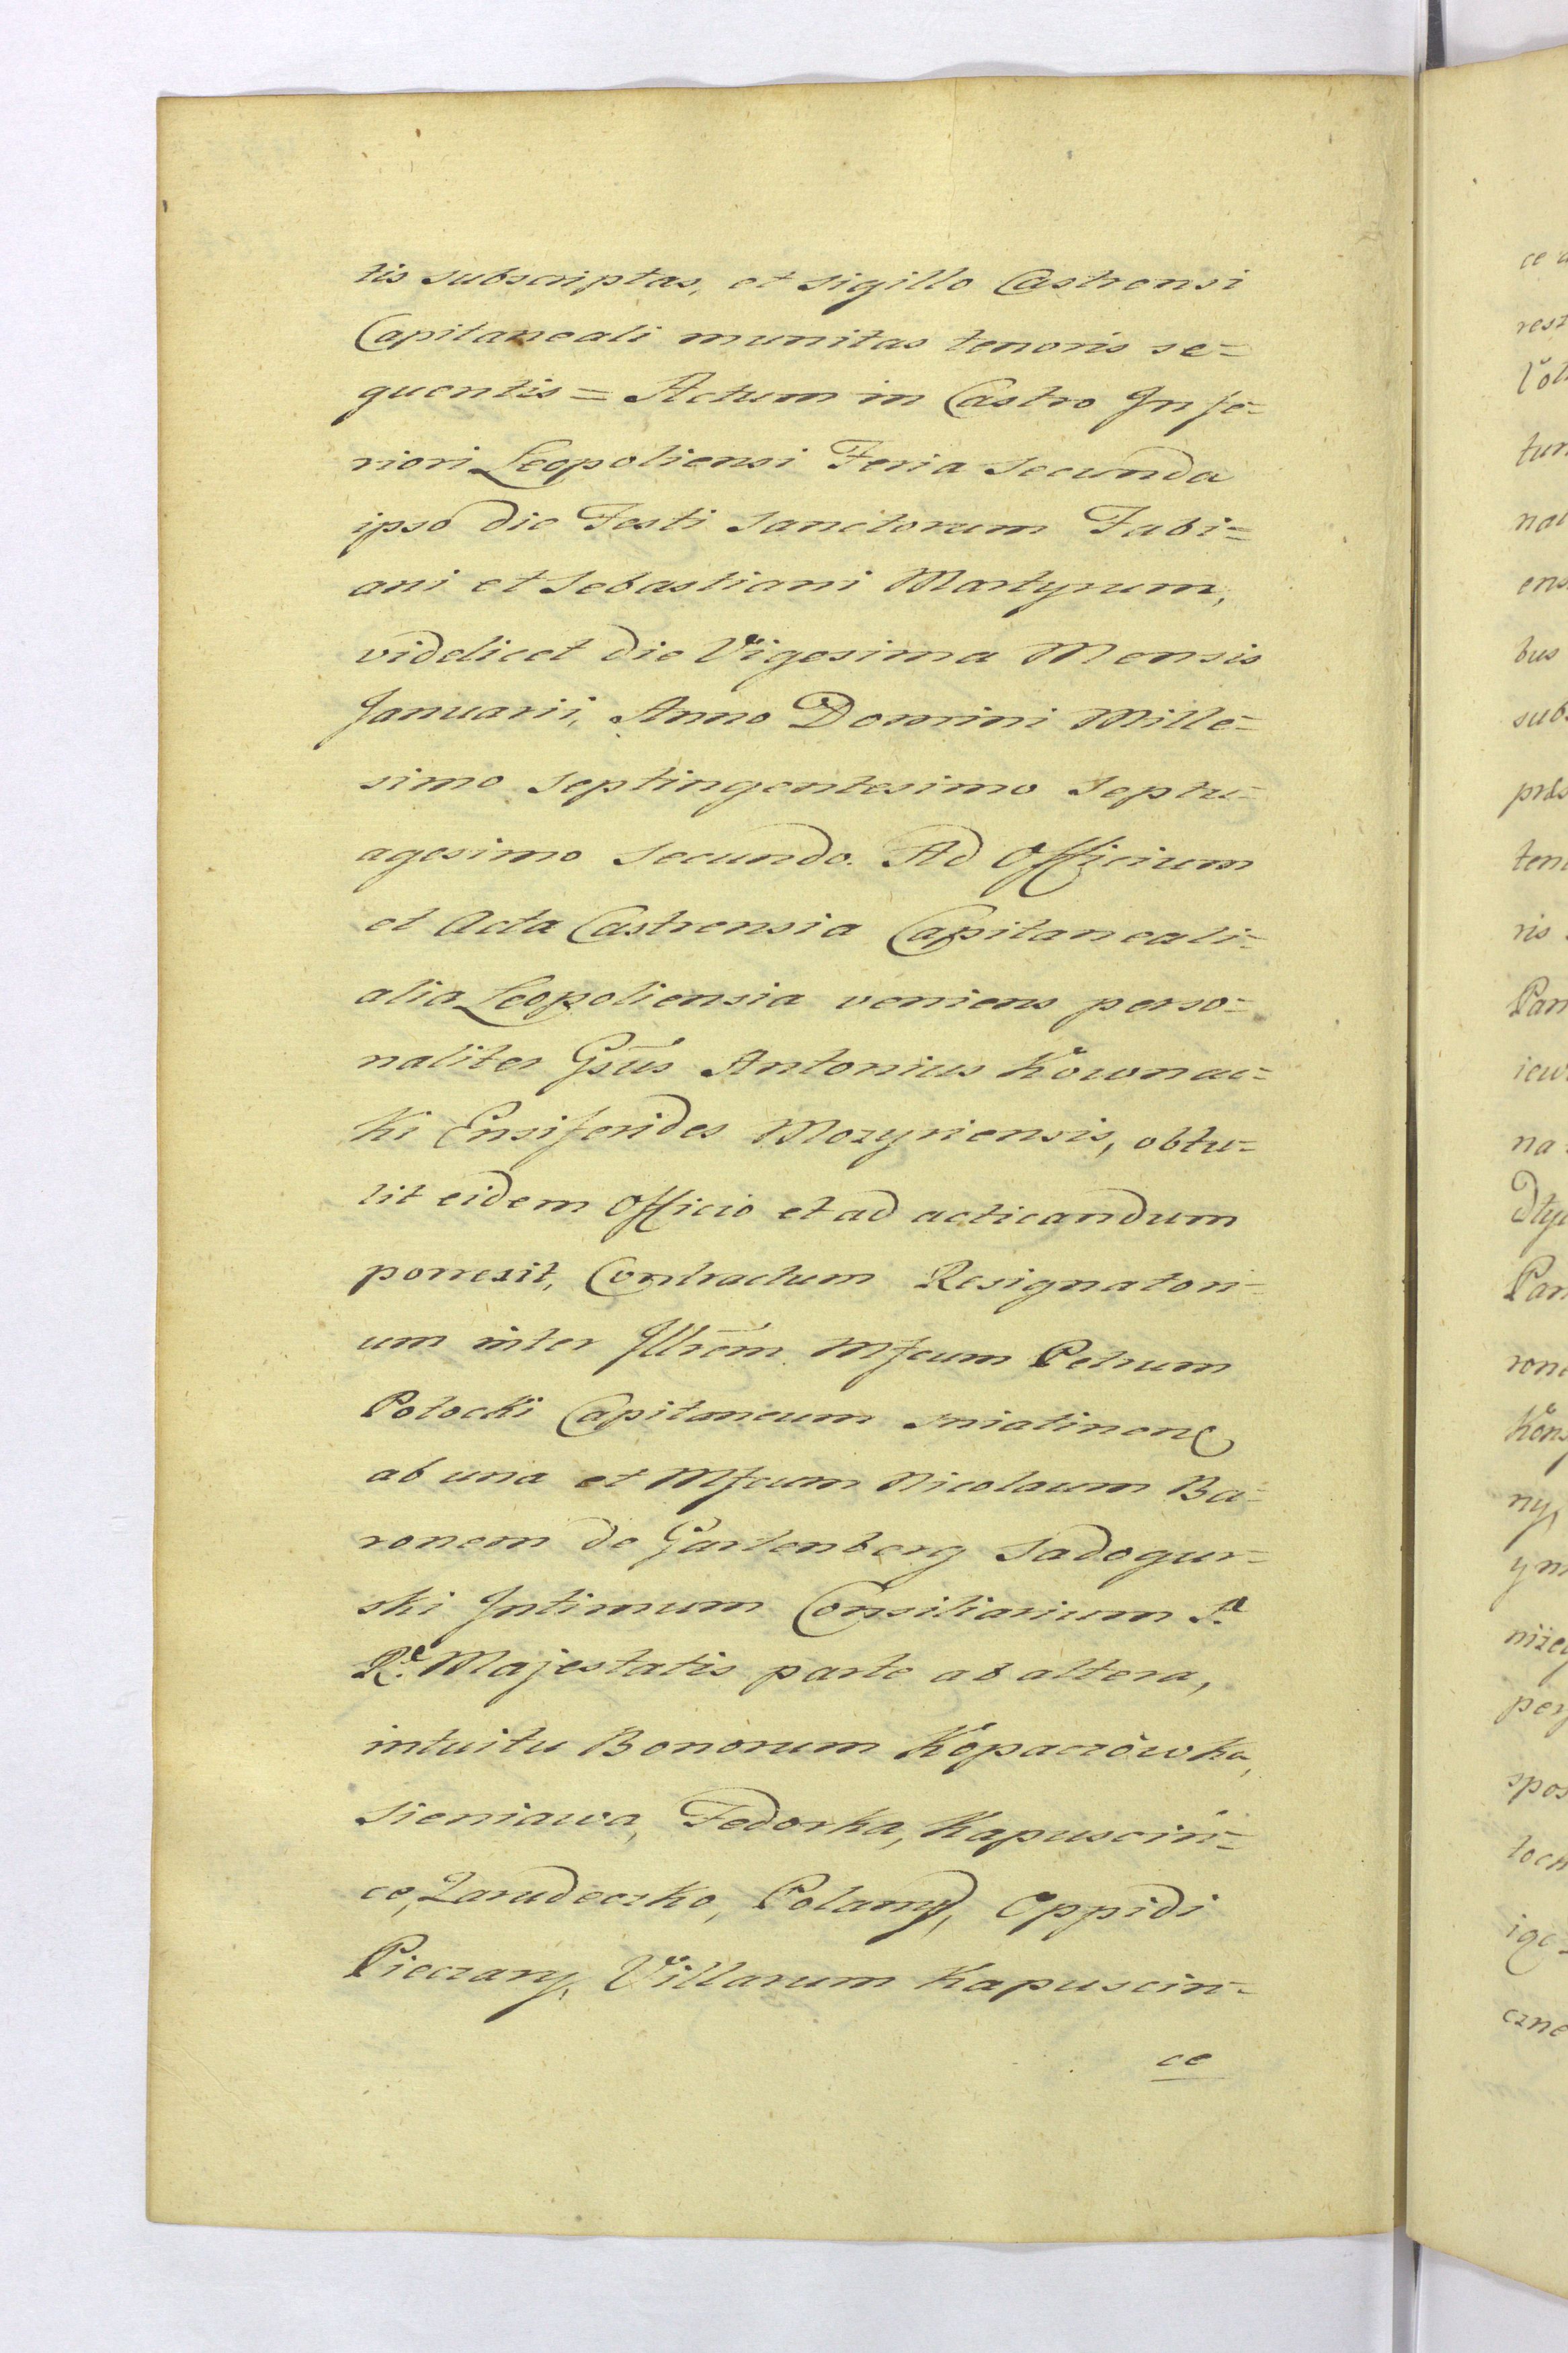 tis subscriptas, et sigillo Castrensi
Capitaneali munitas tenoris se=
quentis = Actum in Castro Infe=
riori Leopoliensi Feria secunda
ipso die Festi Sanctorum Fabi=
ani et Sebastiani Martyrum,
videlicet die Vigesima Mensis
Januarii, Anno Domini Mille=
simo Septingentesimo Septu=
agesimo Secundo. Ad Officium
et Acta Castrensia Capitaneali=
alia Leopoliensia veniens perso=
naliter Gsūs Antonius Kownac=
ki Ensiferides Mozyriensis, obtu=
lit eidem Officio et ad acticandum
porrexit, Contractum Resignatori=
um inter Jllrēm Mfcum Petrum
Potocki Capitaneum Sniatinens
ab una et Mfcum Nicolaum Ba=
ronem de Gartenberg Sadogur=
ski Intimum Consiliarium Sa
Re Majestatis parte ab altera,
intuitu Bonorum Kopaczówka,
Sieniawa, Fedorka, Kapuściń=
ce, Zarudeczko, Polany, Oppidi
Pieczary, Villarum Kapuscin=
ce
ce
rest
tur
nal
ens
bus
subs
præs
ten
ris
Pan
iew
na
Dty
Pan
rone
Kons
ny,
yn
niżey
pey
spos
tock
czne